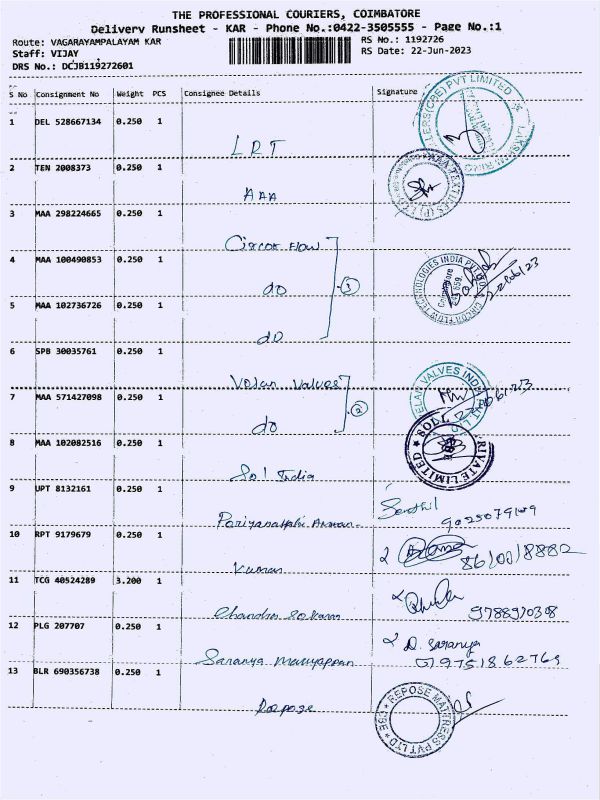 THE PROFESSIONAL COURIERS, COIMBATORE
Delivery Runsheet - KAR - Phone No.:0422-3505555 - Page No.:1
Route: VAGARAYAMPALAYAM KAR
RS No.: 1192726
Staff: VIJAY
RS Date: 22-Jun-2023
DRS No.: DCJB119272601
S No Consignment No Weight PCS Consignee Details Signature
1 DEL 528667134 0.250 1
LRT
2 TEN 2008373 0.250 1
AAA
3 MAA 298224665 0.250 1
Circor Flow
4 MAA 100490853 0.250 1
do
3
5 MAA 102736726 0.250 1
do
6 SPB 30035761 0.250 1
Velan Valves
7 MAA 571427098 0.250 1
do
2
8 MAA 102082516 0.250 1
Sol India
9 UPT 8132161 0.250 1
Senthil
10 RPT 9179679 0.250 1
Kumar
11 TCG 40524289 3.200 1
9788970308
12 PLG 207707 0.250 1
D. Saranya
9751862769
13 BLR 690356738 0.250 1
Repose
REPOSE MATTRESS PVT LTD CBE